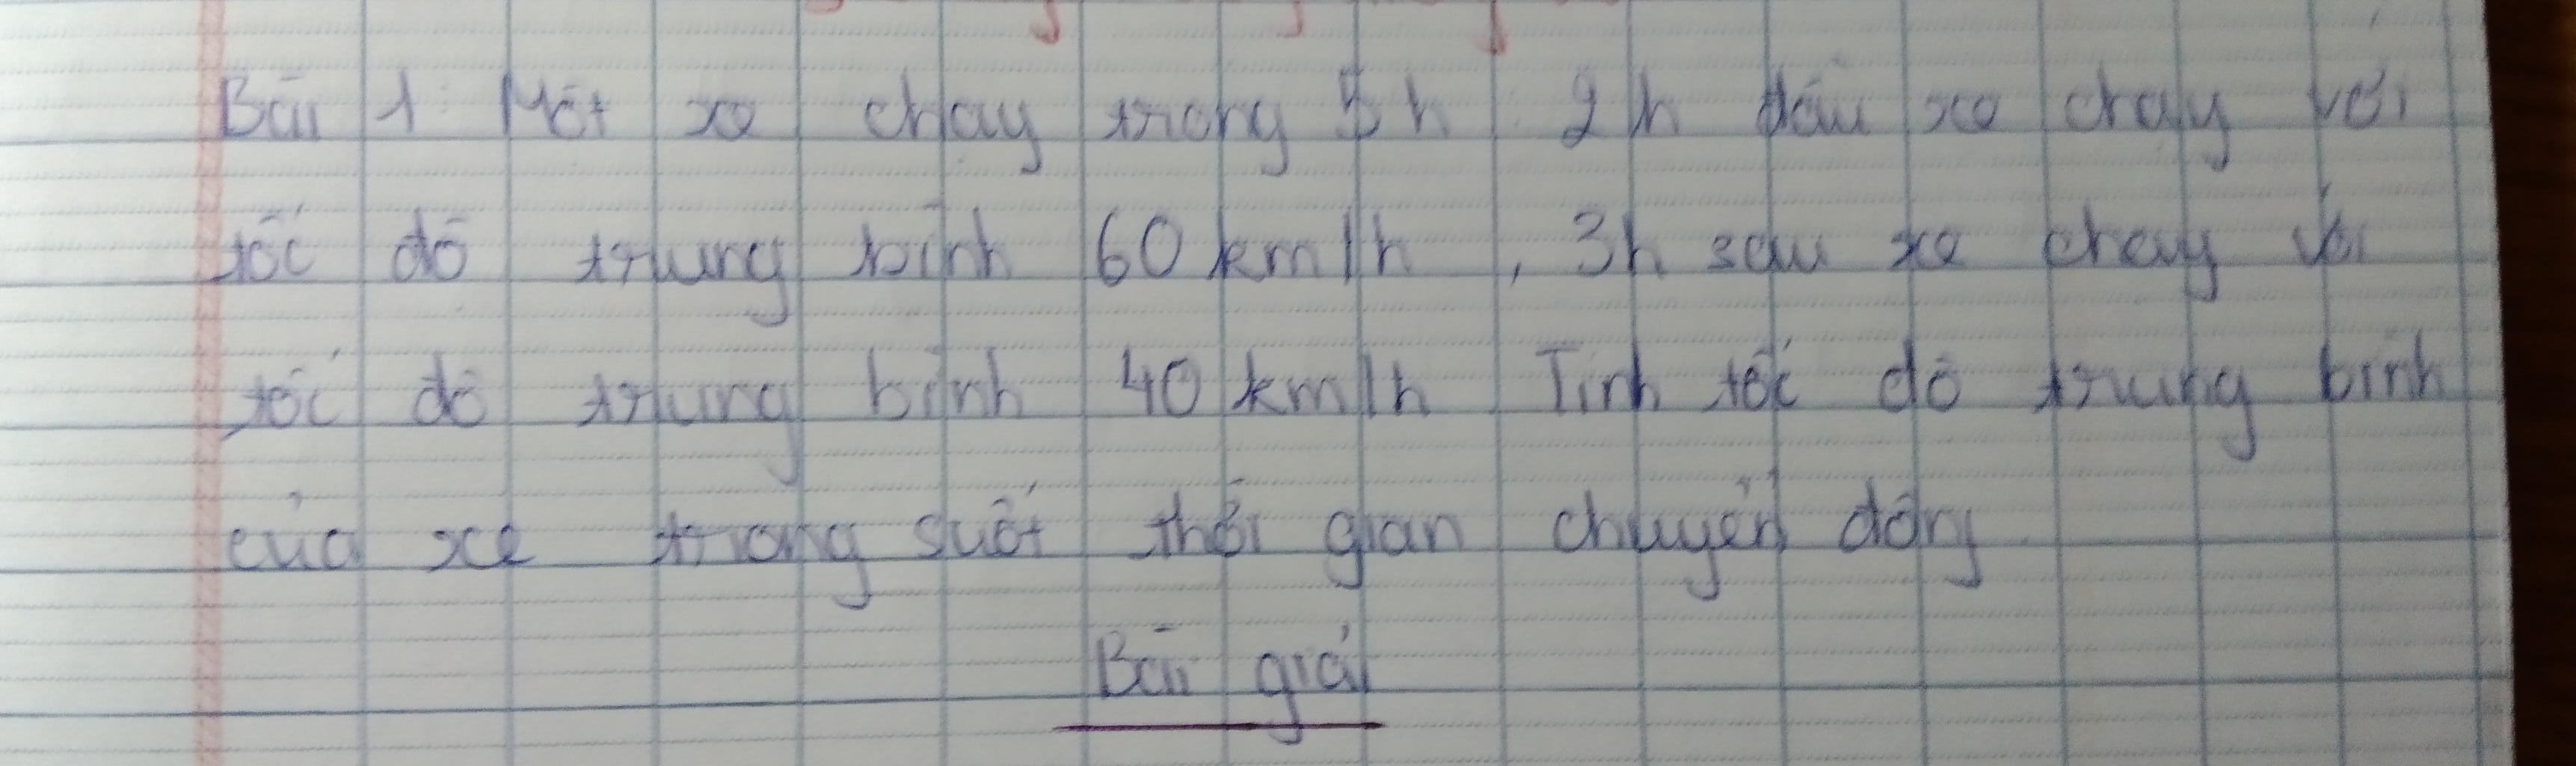 Bài 1: Một xe chạy trong 5h 2h đầu xe chạy với
tốc độ trung bình 60 km/h, 3h sau xe chạy với
tốc độ trung bình 40 km/h Tính tốc độ trung bình
của xe trong suốt thời gian chuyển động.
Bài giải